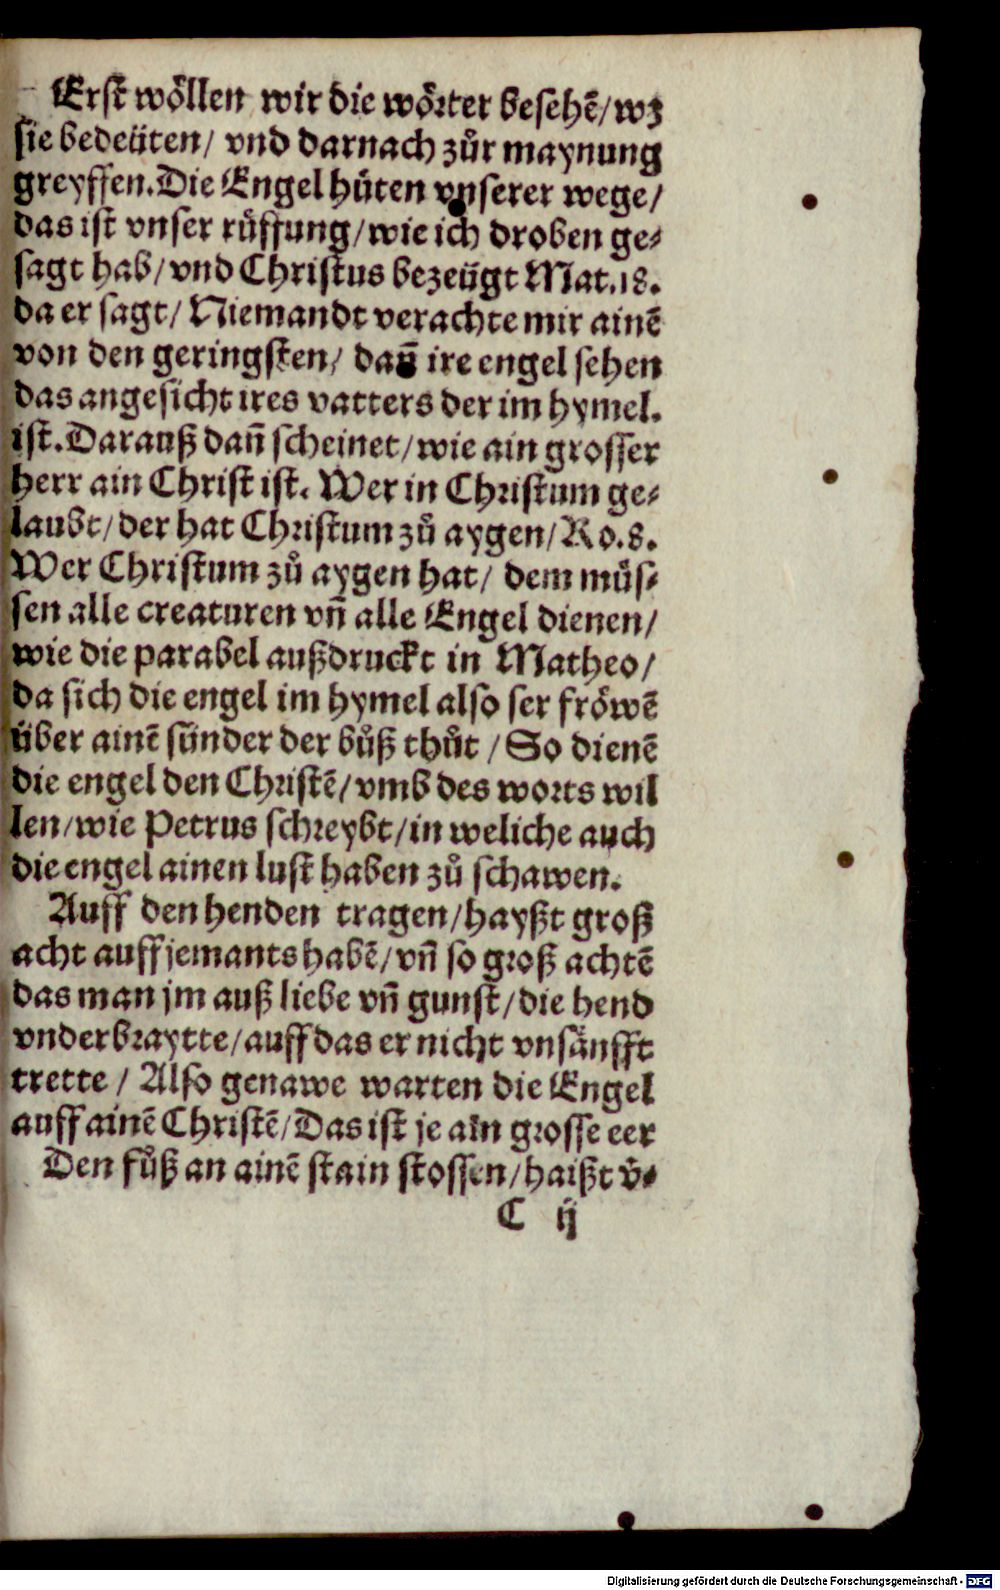 Erst wöllen wir die wörter besehē/ wz
sie bedeüten/ vnd darnach zůr maynung
greyffen. Die Engel hüten vnserer wege/
das ist vnser rüffung/ wie ich droben ge⸗
sagt hab/ vnd Christus bezeügt Mat. 18.
da er sagt/ Niemandt verachte mir ainē
von den geringsten/ dañ ire engel sehen
das angesicht ires vatters der im hymel.
ist. Darauß dañ scheinet/ wie ain grosser
herr ain Christ ist. Wer in Christum ge⸗
laubt/ der hat Christum zů aygen/ Ro. 8.
Wer Christum zů aygen hat/ dem müs⸗
sen alle creaturen vñ alle Engel dienen/
wie die parabel außdruckt in Matheo/
da sich die engel im hymel also ser fröwē
über ainē sünder der bůß thůt / So dienē
die engel den Christē/ vmb des worts wil
len/ wie Petrus schreybt/ in weliche auch
die engel ainen lust haben zů schawen.
Auff den henden tragen/ hayßt groß
acht auff jemants habē/ vñ so groß achtē
das man jm auß liebe vñ gunst/ die hend
vnderbraytte/ auff das er nicht vnsänfft
trette / Also genawe warten die Engel
auff ainē Christē/ Das ist je ain grosse eer
Den fůß an ainē stain stossen/ haißt v̊⸗
C ij
Digitalisierung gefördert durch die Deutsche Forschungsgemeinschaft - DFG